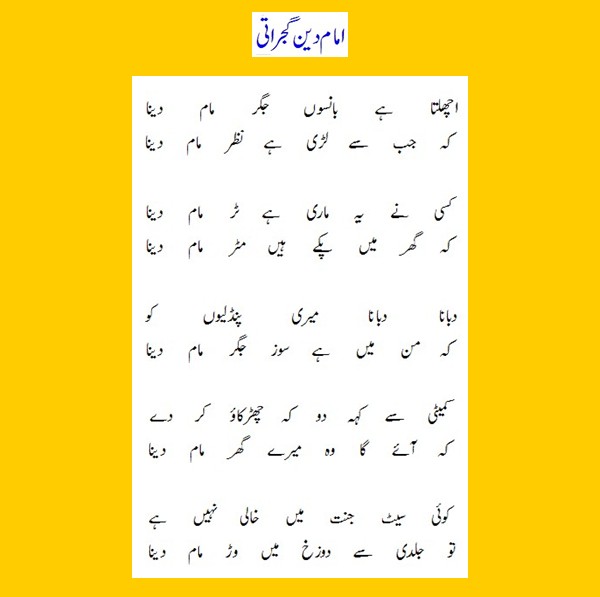 امام دین گجراتی
اچھلتا ہے بانسوں جگر مام دینا
کہ جب سے لڑی ہے نظر مام دینا
کسی نے یہ ماری ہے ٹر مام دینا
کہ گھر میں پکے ہیں مٹر مام دینا
دبانا دبانا میری پنڈلیوں کو
کہ من میں ہے سوز جگر مام دینا
کمیٹی سے کہہ دو کہ چھڑکاؤ کر دے
کہ آئے گا وہ میرے گھر مام دینا
کوئی سیٹ جنت میں خالی نہیں ہے
تو جلدی سے دوزخ میں وڑ مام دینا